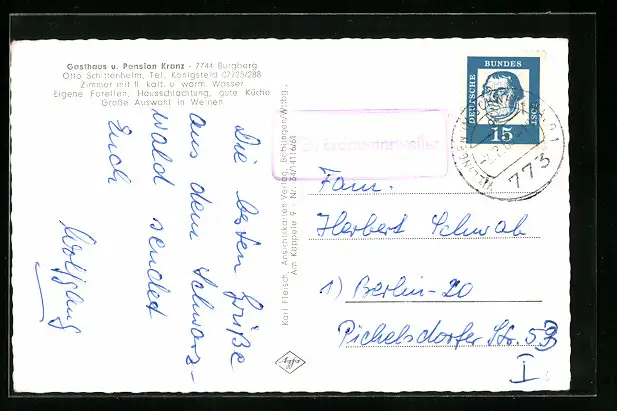 Gasthaus u. Pension Kranz - 7744 Burgberg
Otto Schittenhelm, Tel. Königsfeld 07725/288
Zimmer mit fl. kalt. u. warm. Wasser
Eigene Forellen, Hausschlachtung, gute Küche
Große Auswahl in Weinen
Die besten Grüße
aus dem Schwarz-
wald sendet
Euch
Wolfgang
Karl Fleisch, Ansichtskarten-Verlag, Böhringen/Wttbg.,
Am Käppele 9 - Nr. 84/14116/61
Erdmannsweiler
DEUTSCHE
BUNDES
POST
15
VILLINGEN
773
Fam.
Herbert Schwab
1) Berlin-20
Pichelsdorfer Str. 53
I